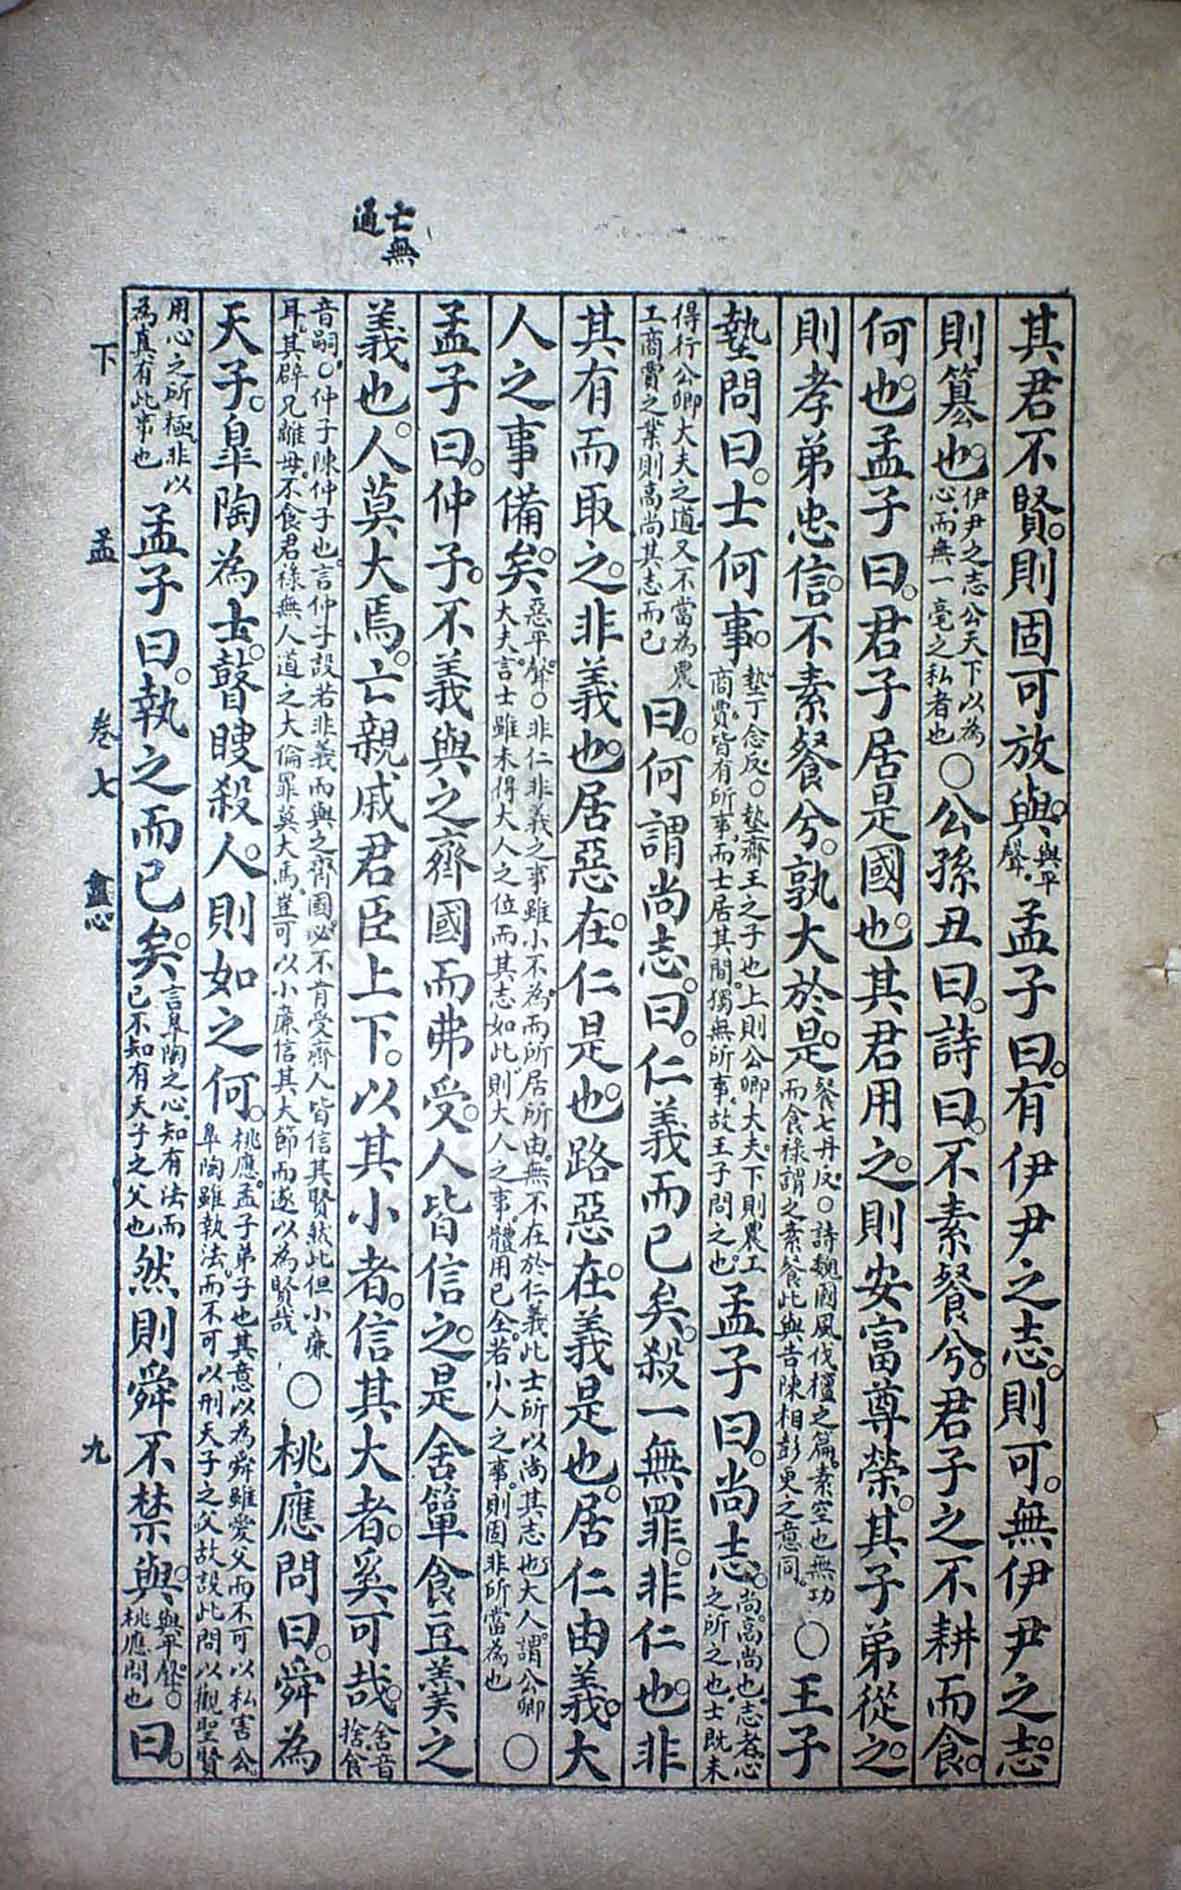 亡無
通
其君不賢。則固可放與。與平聲。孟子曰。有伊尹之志。則可。無伊尹之志。
則簒也。伊尹之志公天下以為心而無一毫之私者也○公孫丑曰。詩曰。不素餐兮。君子之不耕而食。
何也。孟子曰。君子居是國也。其君用之。則安富尊榮。其子弟從之。
則孝弟忠信。不素餐兮。孰大於是。餐七丹反。○詩魏國風伐檀之篇。素空也無功而食祿謂之素餐此與告陳相彭更之意同。○王子
墊問曰。士何事。墊丁念反。○墊齊王之子也上則公卿大夫。下則農工商賈。皆有所事。而士居其間。獨無所事。故王子問之也。孟子曰。尚志。尚。高尚也。志者心之所之也。士既未
得行公卿大夫之道又不當為農工商賈之業則高尚其志而已曰。何謂尚志。曰。仁義而已矣。殺一無罪。非仁也。非
其有而取之。非義也。居惡在。仁是也。路惡在。義是也。居仁由義。大
人之事備矣。惡平聲。○非仁非義之事雖小不為。而所居所由。無不在於仁義。此士所以尚其志也。大人。謂公卿大夫。言士雖未得大人之位而其志如此。則大人之事。體用已全。若小人之事。則固非所當為也○
孟子曰。仲子。不義與之齊國而弗受。人皆信之。是舍簞食豆羹之
義也。人莫大焉。亡親戚君臣上下。以其小者。信其大者。奚可哉。舍音捨食
音嗣。○仲子陳仲子也。言仲子設若非義而與之齊國。必不肯受。齊人皆信其賢然此但小廉耳。其辟兄離母。不食君祿無人道之大倫罪莫大焉。豈可以小廉信其大節而遂以為賢哉○桃應問曰。舜為
天子。皐陶為士。瞽瞍殺人。則如之何。桃應。孟子弟子也其意以為舜雖愛父而不可以私害公皐陶雖執法。而不可以刑天子之父故設此問以觀聖賢
用心之所極。非以為真有此事也孟子曰。執之而已矣。言皐陶之心。知有法而已不知有天子之父也然則舜不禁與。與平聲。○桃應問也曰。
下 孟 卷七 盡心 九